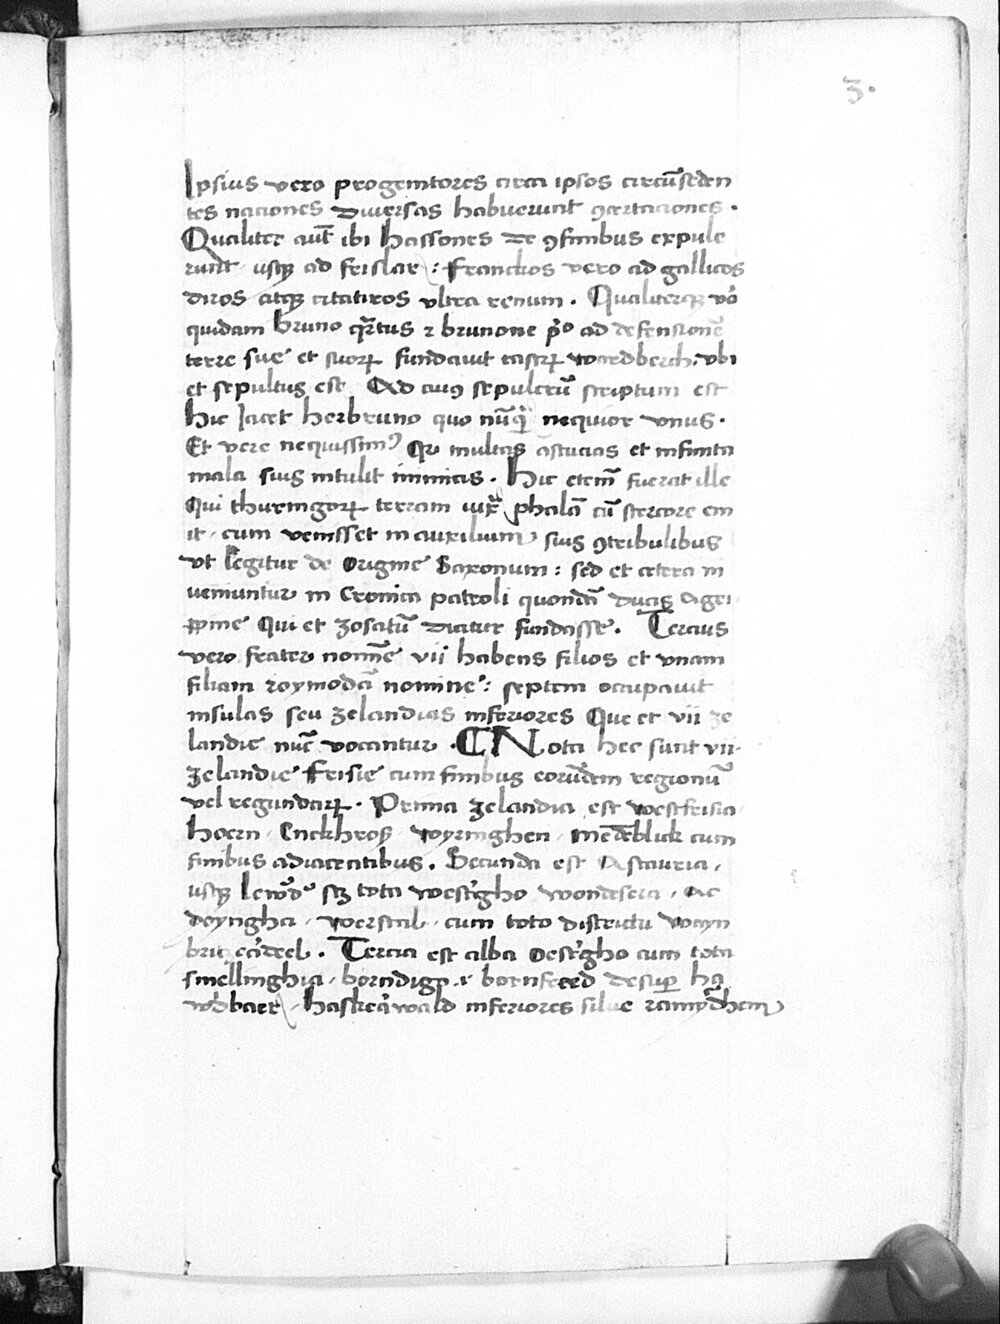 3.
Ipsius vero progenitores circa ipsos circūseden
tes naciones diversas habuerunt ꝯcertaciones .
Qualiter aūt ibi hassones de ꝯfinibus expule
runt usqꝫ ad frislar : franckos vero ad gallicos
atqꝫ ultra renum . Qualiterqꝫ vo̅
quidam bruno qrtus ⁊ brunone pͦo ad defensionē
terre sue et suorꝝ fundavit castrꝝ wardberch . vbi
et sepultus est Ad cuiꝰ sepulcrū scriptum est
hic Jacet herbruno quo nūqͣ nequior vnus .
Et vere nequissimꝰ Qr multas astucias et infinita
mala suis intulit inimicis . Hic etem̄ fuerat ille
Qui thuringorꝝ terram phalā cū stercore em
it . cum venisset in auxilium suis ꝯtribulibus
vt legitur de Origine Saxonum : sed et cetera in
veniuntur in Cronica patroli quondā ducis Agri
ppine Qui et zosatū dicitur fundasse . Tercius
vero frater nomīe vii habens filios et vnam
filiam roymodā nomine : septem occupavit
insulas seu zelandias inferiores Que et vii ze
landie nūc vocantur . Nota hec sunt vii .
zelandie frisie cum finibus eorūdem regionū
vel regundarꝝ . Prima zelandia est westfrisia
hoern . Enckhroꝫ . wyringhen . medēblick cum
finibus adiacentibus . Secunda est Astauria .
usqꝫ lew̄dͦ sꝫ tota westgho wondesera . Ac
deyngha . verstal . cum toto districtu wayn
. Tercia est alba oestgho cum tota
smellinghia . borndigꝑ . bornfeerd desuꝑ ha
w̄dbaer . haskerwald inferiores silue